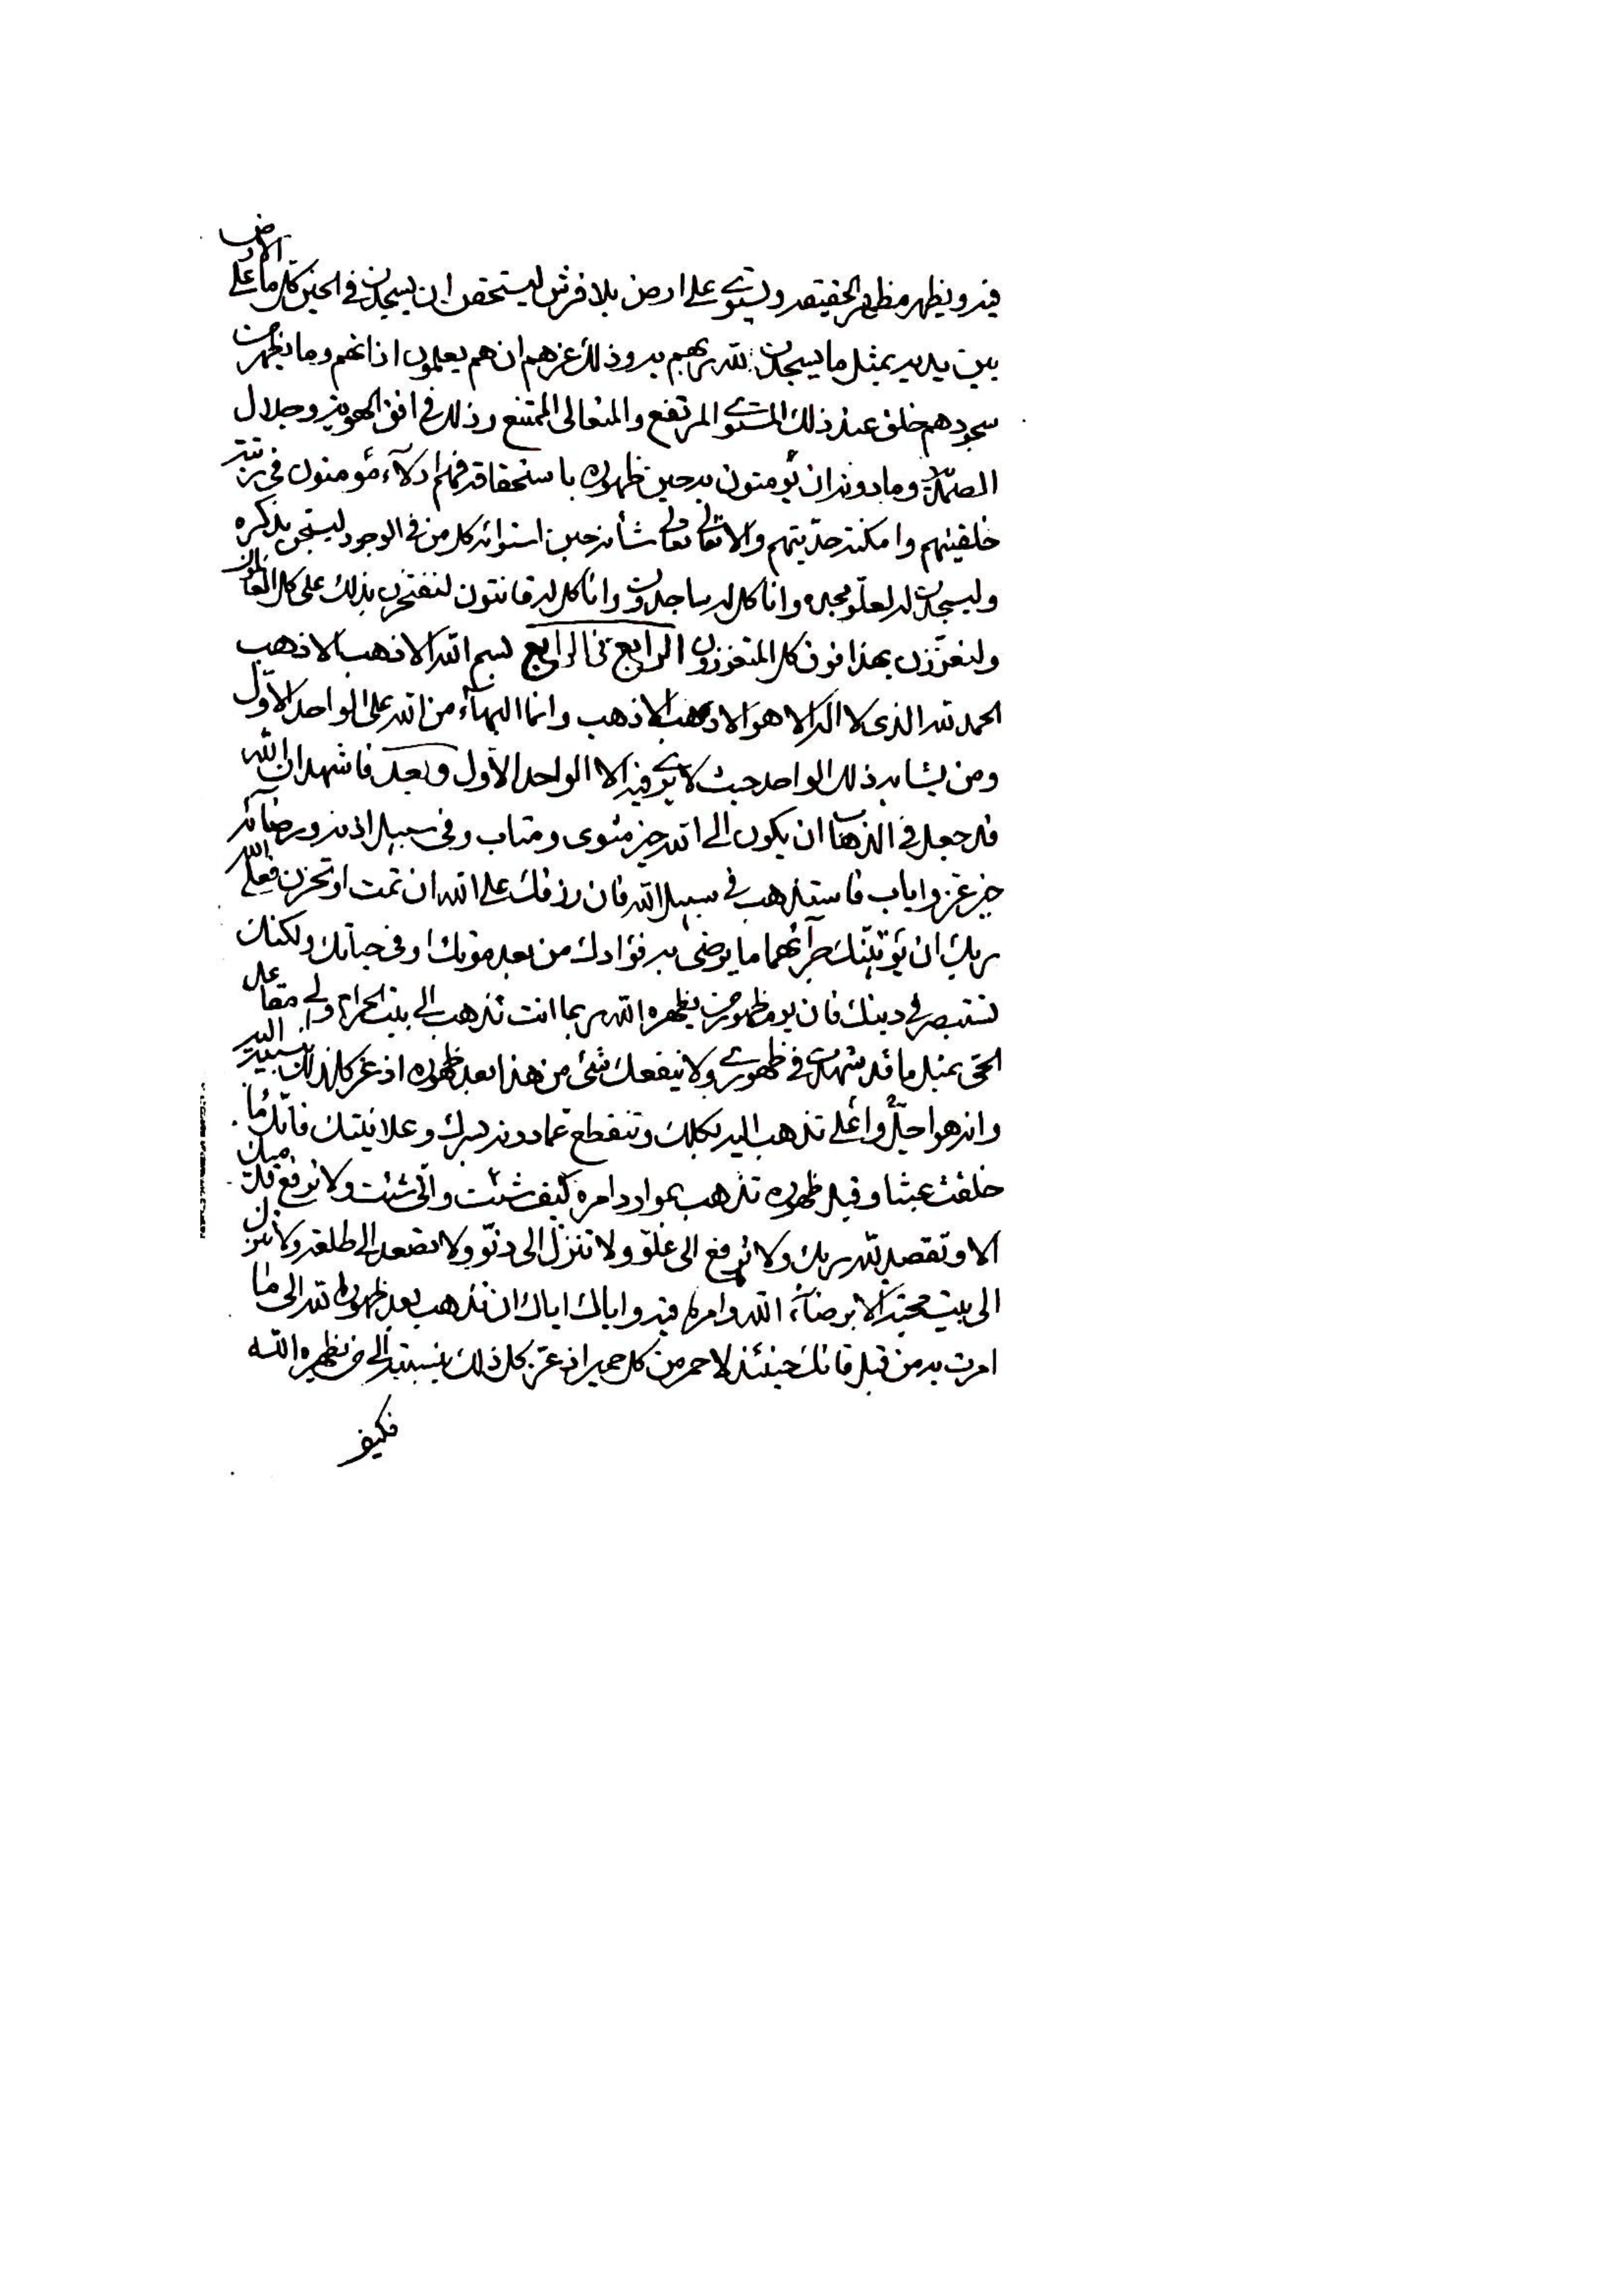 فيه ويظهر مظهر الحقيقة ويستوي على ارض بلا فرش ليستحقن ان يسجدن في الحين كل ما على الارض
بين يديه بمثل ما يسجدن لله ربهم به وذلك عزهم ان هم يعلمون اذ انهم وما يظهر من
سجودهم خلق عند ذلك المستوي المرتفع والمتعالى الممتنع وذلك في افق الهوية وجلال
الصمدية وما دونه ان يؤمنون به حين ظهوره باستحقاقه فهم ادلاء مؤمنون في رتبة
خلقيتهم وامكنة حديتهم والا تعالى تعالى شأنه حين استوائه كل من في الوجود ليستحين بذكره
وليسجدن له لعلو مجده وانا كل له ساجدون وانا كل له قانتون لنفتخرن بذلك على كل العالمون
ولنعززن بهذا فوق كل المتعززون الرابع في الرابع بسم الله الاذهب الاذهب
الحمد لله الذى لا اله الا هو الاذهب الاذهب وانما البهآء من الله على الواحد الاول
ومن يشابه ذلك الواحد حيث لا يرى فيه الا الواحد الاول وبعد فاشهد ان الله
قد جعل في الذهاب ان يكون الى الله خير مثوى ومتاب وفي سبيل اذنه ورضآئه
خير عز واياب فاستذهب في سبيل الله فان رزقك على الله ان تمت او تحزن فعلى الله
ربك ان يؤتينك جزآئهما ما يرضى به فؤادك من بعد موتك او في حياتك ولكنك
تستبصر في دينك فان يوم ظهور من يظهره الله ربما انت تذهب الى بيت الحرام او الى مقاعد
الحي بمثل ما قد شهدت في ظهوري ولا ينفعك شئ من هذا بعد ظهوره اذ عز كل ذلك بنسبته اليه
وانه هو اجل واعلى تذهب اليه بكلك وتنقطع عما دونه بسرك وعلانيتك فانك ما
خلقت عبثا وقبل ظهوره تذهب بموارد امره كيف شئت وانى شئت ولا ترفع قدميك
الا وتقصد لله ربك ولا ترفع الى علو ولا تنزل الى دنو ولا تصعد الى طلعة ولا تنزلن
الى بيت محبته الا برضآء الله وامره فيه واياك اياك ان تذهب بعد ظهور الله الى ما
امرت به من قبل فانك حينئذ لاحمر من كل حمير اذ عز كل ذلك بنسبته الى من يظهره الله
فكيف